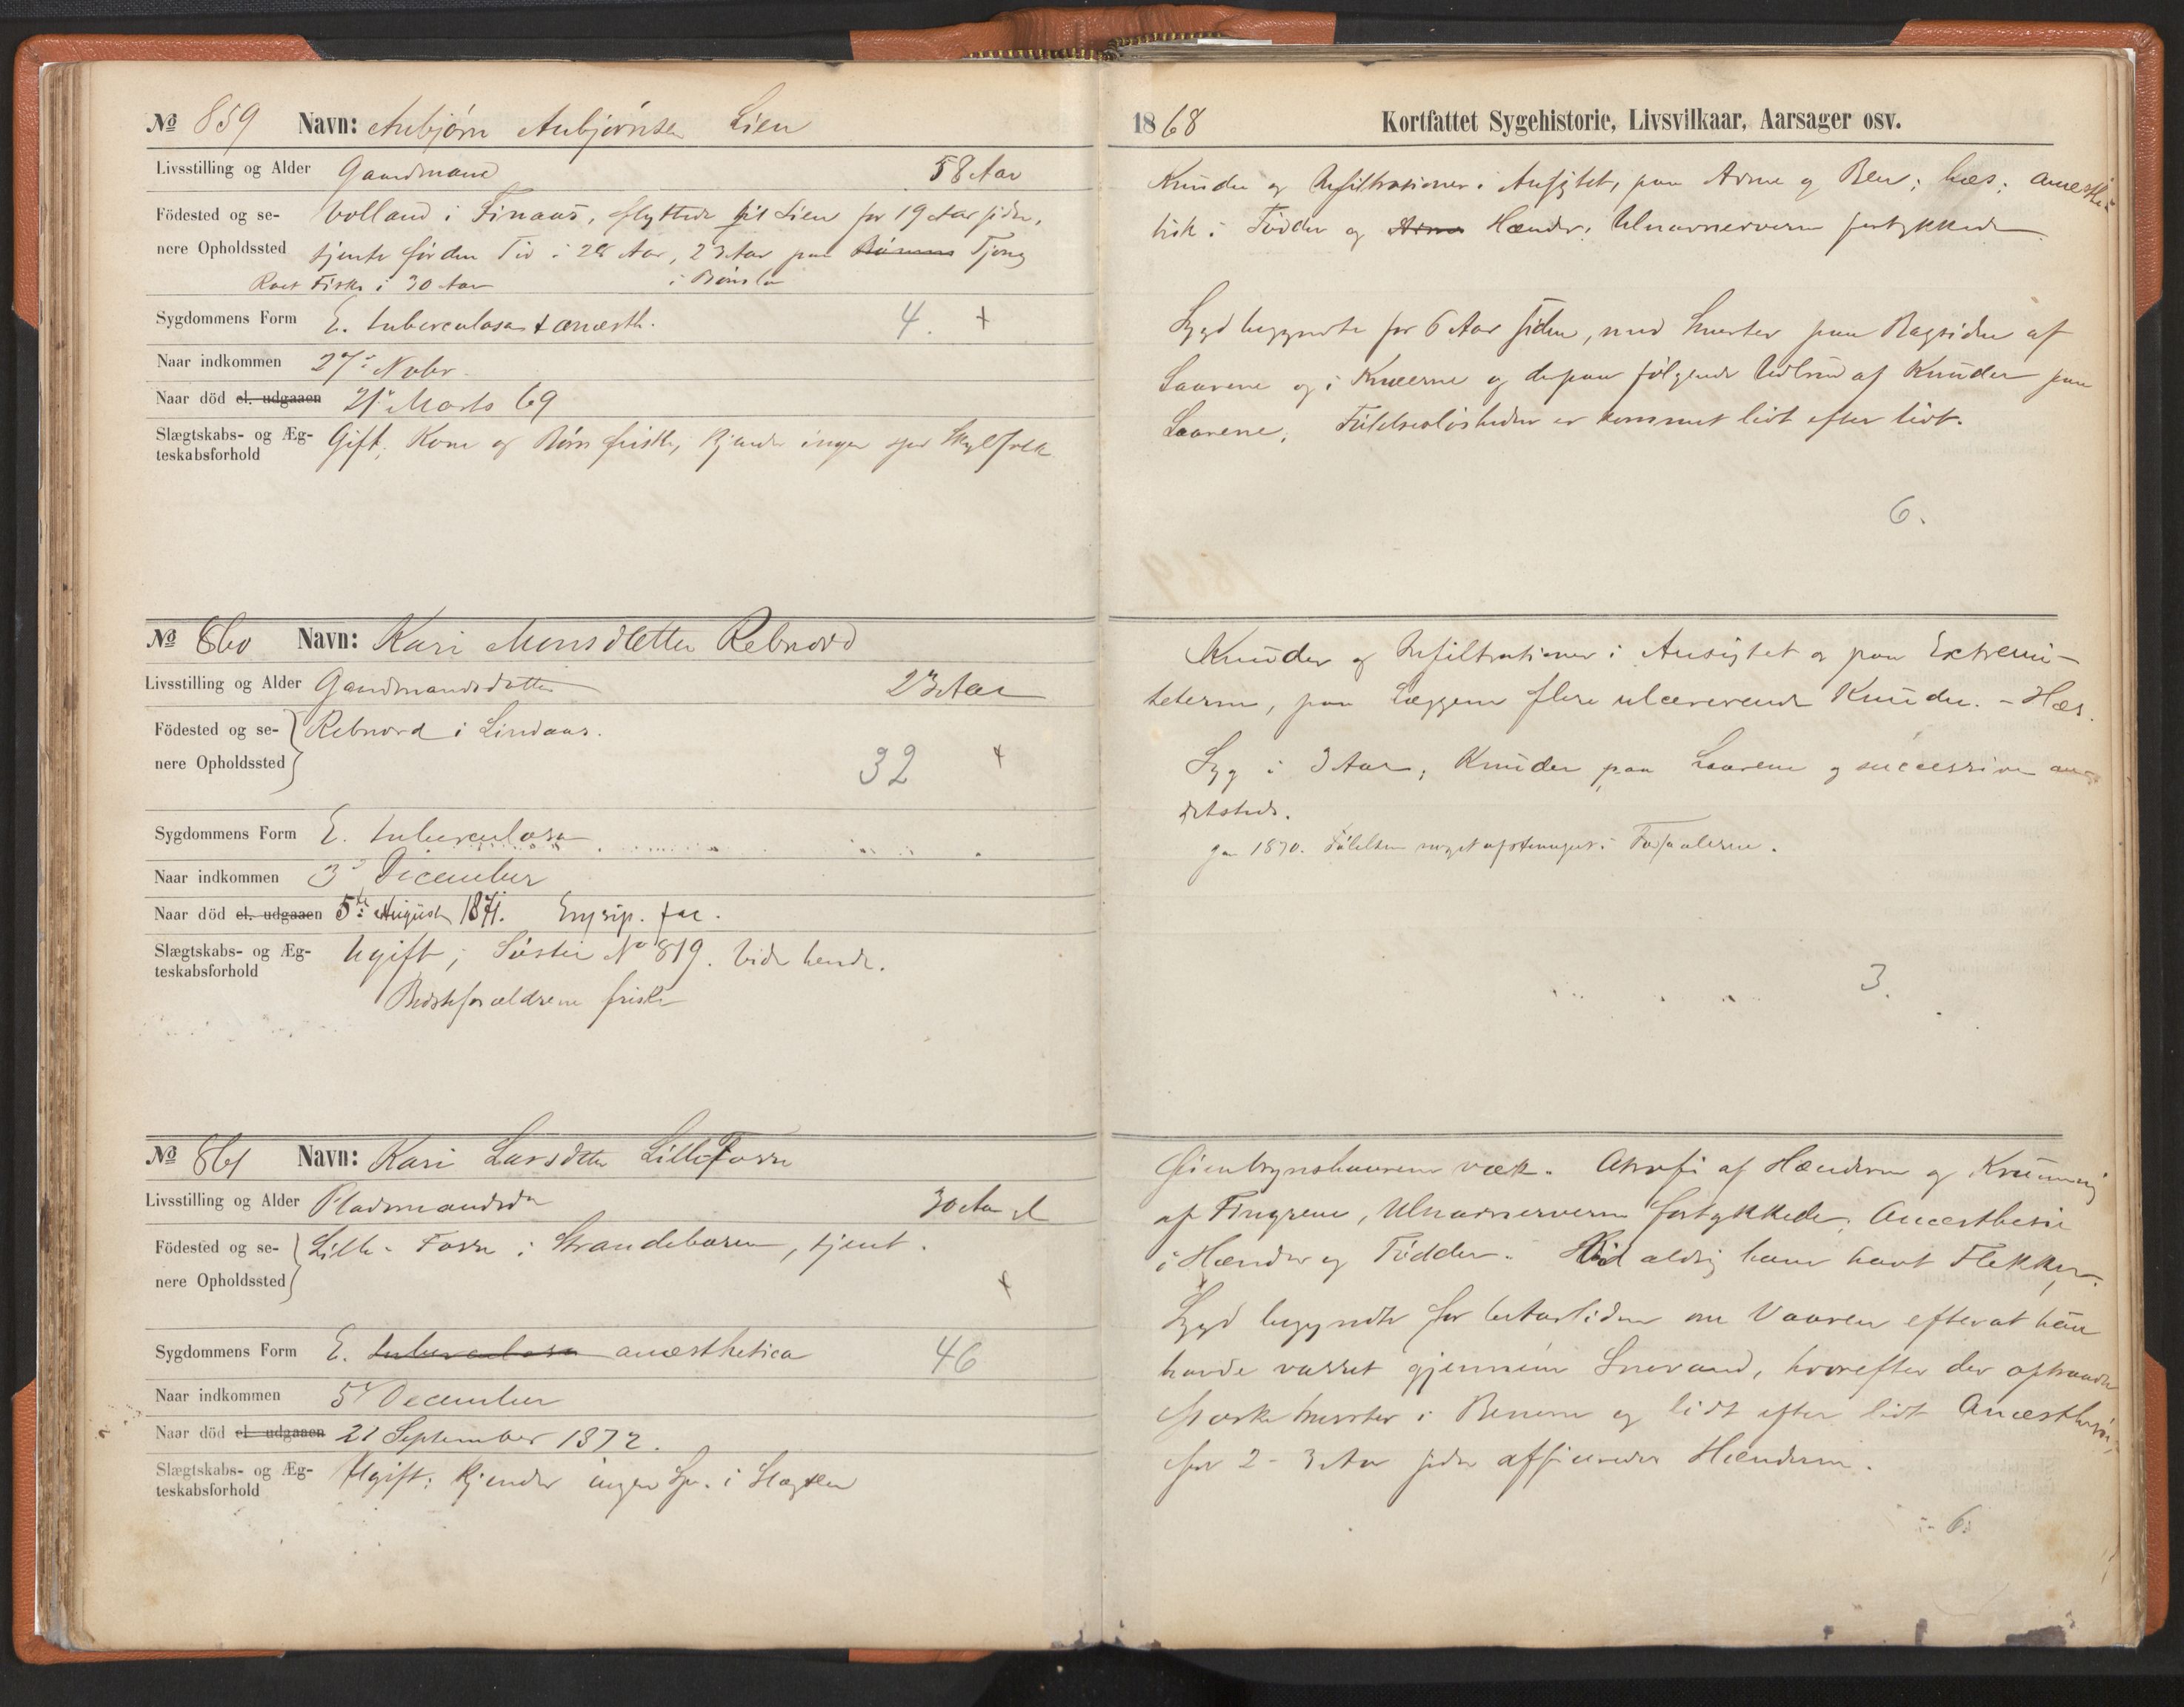 No 859 Navn: Anbjørn Anbjørnsen Lien
Livsstilling og Alder Gaardmand 58 Aar
Födested og se- Volland i Finaas, flyttede til Lien for 19 Aar siden,
nere Opholdssted tjente før den Tid i 28 Aar, 23 Aar paa Tjong
Roet Fiske i 30 Aar i Bømlo
Sygdommens Form E. tuberculosa & anæsth. 4. +
Naar indkommen 27de Novbr.
Naar död el. udgaaen 21de Marts 69
Slægtskabs- og Æg- Gift, Kone og Børn friske, kjender ingen spd Skyldfolk
teskabsforhold
No 860 Navn: Kari Monsdatter Rebnord
Livsstilling og Alder Gaardmandsdatter 23 Aar
Födested og se- Rebnord i Lindaas.
nere Opholdssted 32 +
Sygdommens Form E. tuberculosa
Naar indkommen 3de December
Naar död el. udgaaen 5te August 1871. Erysip. fac.
Slægtskabs- og Æg- Ugift; Søster No 819. Vide hende.
teskabsforhold
Bedsteforældrene friske
No 861 Navn: Kari Larsdtter Lille Fosse
Livsstilling og Alder Pladsmandsdr 30 Aar
Födested og se- Lille-Fosse i Strandebarm, tjent.
nere Opholdssted +
Sygdommens Form E. tuberculosa anæsthetica 46
Naar indkommen 5te December
Naar död el. udgaaen 21 September 1872.
Slægtskabs- og Æg- Ugift; kjender ingen Sp. i Slægten
teskabsforhold
1868 Kortfattet Sygehistorie, Livsvilkaar, Aarsager osv.
Knuder og Infiltrationer i Ansigtet, paa Arme og Ben; hæs; anæsthe-
tisk i Fødder og Arme Hænder; Ulnarnerverne fortykkede
Sygd begyndte for 6 Aar siden, med Smerter paa Bagsiden af
Laarene og i Knæerne og derpaa følgende Udbrud af Knuder paa
Laarene. Følelsesløsheden er kommet lidt efter lidt.
6.
Knuder og Infiltrationer i Ansigtet og paa Extremi-
teterne, paa Læggene flere ulcererende Knuder. - Hæs.
Syg i 3 Aar; Knuder paa Laarene og successive an-
detsteds.
Jan 1870. Følelsen noget afstumpet i Fodsaalerne.
3.
Øienbrynshaarene væk. Atrofi af Hænderne og Krumning
af Fingrene, Ulnarnerverne fortykkede; Anæsthesie
i Hænder og Fødder. Vil aldrig have havt Flekker.
Sygd begyndte for 6 Aar siden om Vaaren efterat hun
havde vasset gjennem Snevand, hvorefter der optraadte
stærke Smerter i Benene og lidt efter lidt Anæsthesie;
for 2-3 Aar siden afficeredes Hænderne.
6.